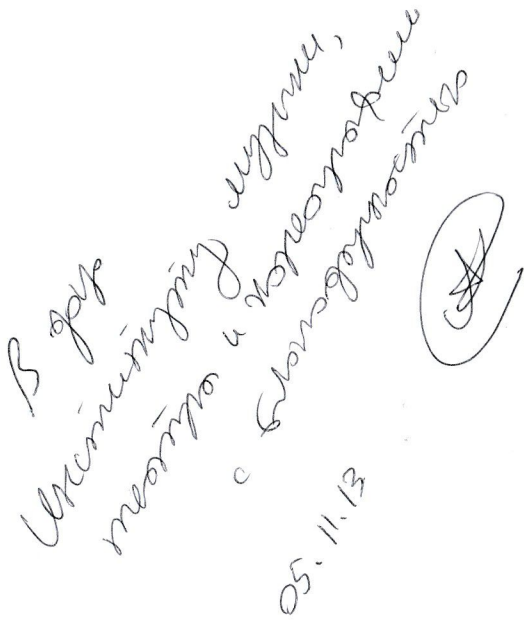 В дар
Институту музыки,
театра и хореографии
с благодарностью
05.11.13